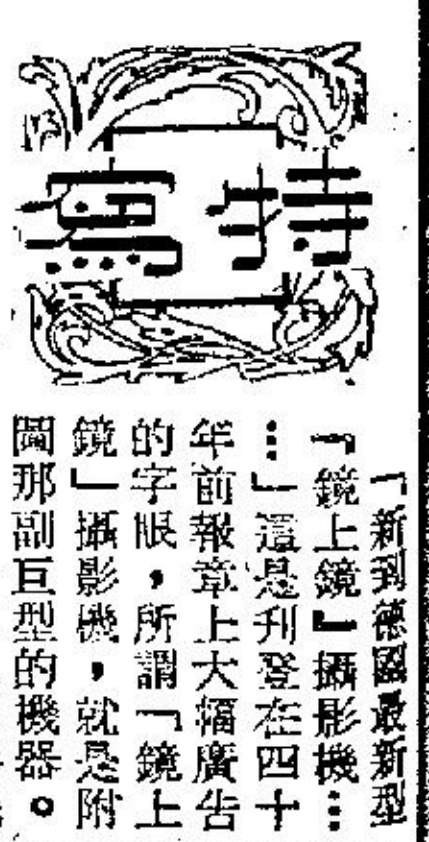 特寫
「新到德國最新型
『鏡上鏡』攝影機…
…」這是刊登在四十
年前報章上大幅廣告
的字眼，所謂「鏡上
鏡」攝影機，就是附
圖那副巨型的機器。